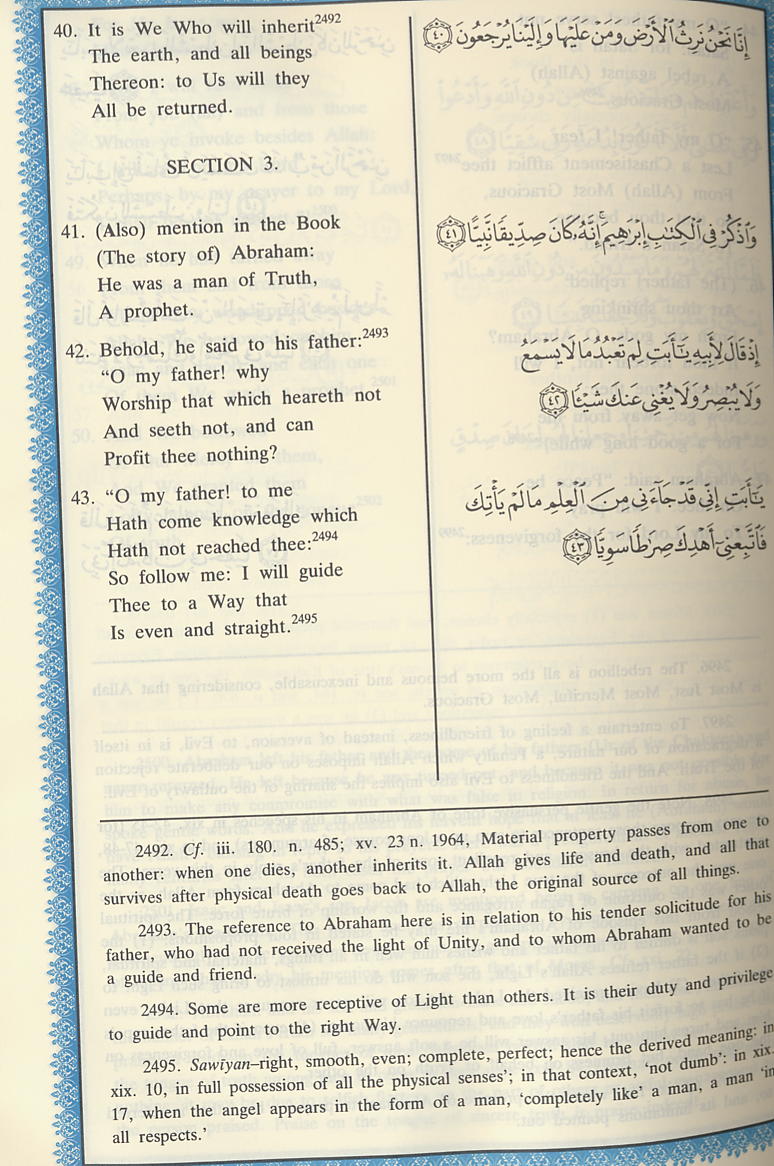 40. It is We Who will inherit2492
The earth, and all beings
Thereon: to Us will they
All be returned.
إِنَّا نَحْنُ نَرِثُ الْأَرْضَ وَمَنْ عَلَيْهَا وَإِلَيْنَا يُرْجَعُونَ ٤٠
SECTION 3.
41. (Also) mention in the Book
(The story of) Abraham:
He was a man of Truth,
A prophet.
وَاذْكُرْ فِي الْكِتَابِ إِبْرَاهِيمَ إِنَّهُ كَانَ صِدِّيقًا نَّبِيًّا ٤١
42. Behold, he said to his father:2493
“O my father! why
Worship that which heareth not
And seeth not, and can
Profit thee nothing?
إِذْ قَالَ لِأَبِيهِ يَا أَبَتِ لِمَ تَعْبُدُ مَا لَا يَسْمَعُ
وَلَا يُبْصِرُ وَلَا يُغْنِي عَنكَ شَيْئًا ٤٢
43. “O my father! to me
Hath come knowledge which
Hath not reached thee:2494
So follow me: I will guide
Thee to a Way that
Is even and straight.2495
يَا أَبَتِ إِنِّي قَدْ جَاءَنِي مِنَ الْعِلْمِ مَا لَمْ يَأْتِكَ
فَاتَّبِعْنِي أَهْدِكَ صِرَاطًا سَوِيًّا ٤٣
2492. Cf. iii. 180. n. 485; xv. 23 n. 1964, Material property passes from one to
another: when one dies, another inherits it. Allah gives life and death, and all that
survives after physical death goes back to Allah, the original source of all things.
2493. The reference to Abraham here is in relation to his tender solicitude for his
father, who had not received the light of Unity, and to whom Abraham wanted to be
a guide and friend.
2494. Some are more receptive of Light than others. It is their duty and privilege
to guide and point to the right Way.
2495. Sawiyan–right, smooth, even; complete, perfect; hence the derived meaning: in
xix. 10, in full possession of all the physical senses’; in that context, ‘not dumb’: in xix.
17, when the angel appears in the form of a man, ‘completely like’ a man, a man ‘in
all respects.’